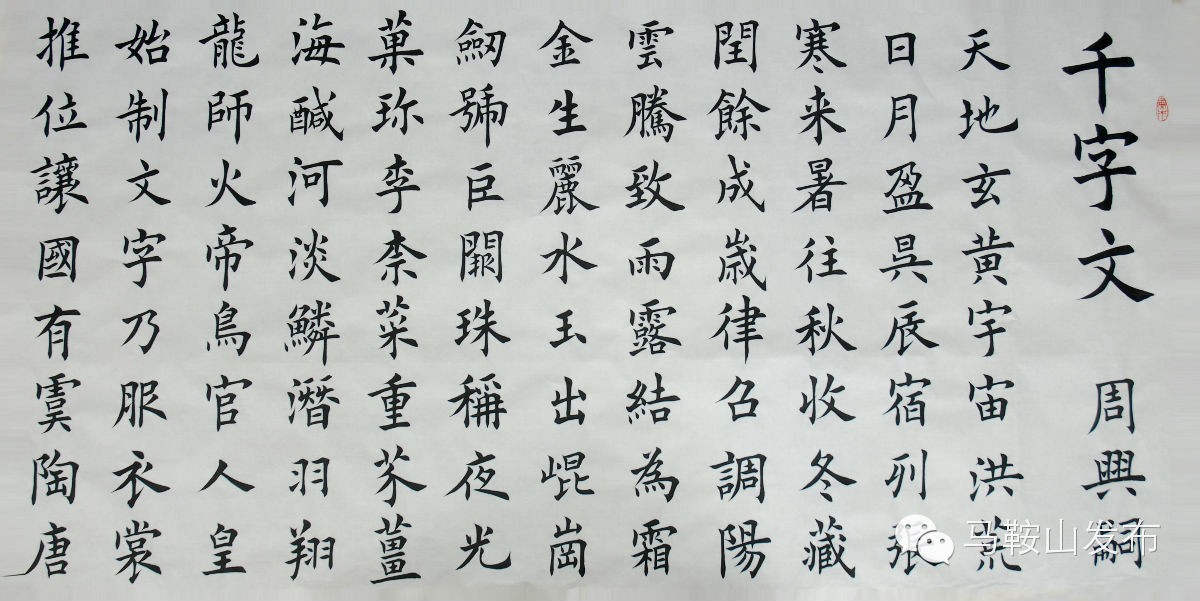 千字文 周興嗣
天地玄黃宇宙洪荒
日月盈昃辰宿列張
寒来暑往秋收冬藏
閏餘成嵗律召調陽
雲騰致雨露結為霜
金生麗水玉出崐崗
劔號巨闕珠稱夜光
菓珎李柰菜重芥薑
海醎河淡鱗潛羽翔
龍師火帝鳥官人皇
始制文字乃服衣裳
推位讓國有虞陶唐
马鞍山发布